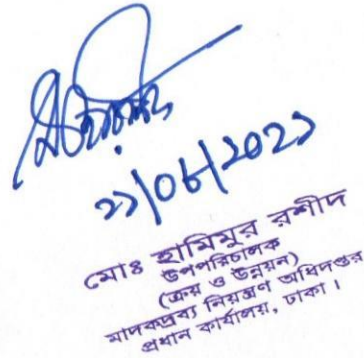 ২১/০৬/২০২১
মোঃ হামিমুর রশীদ
উপপরিচালক
(ক্রয় ও উন্নয়ন)
মাদকদ্রব্য নিয়ন্ত্রণ অধিদপ্তর
প্রধান কার্যালয়, ঢাকা।